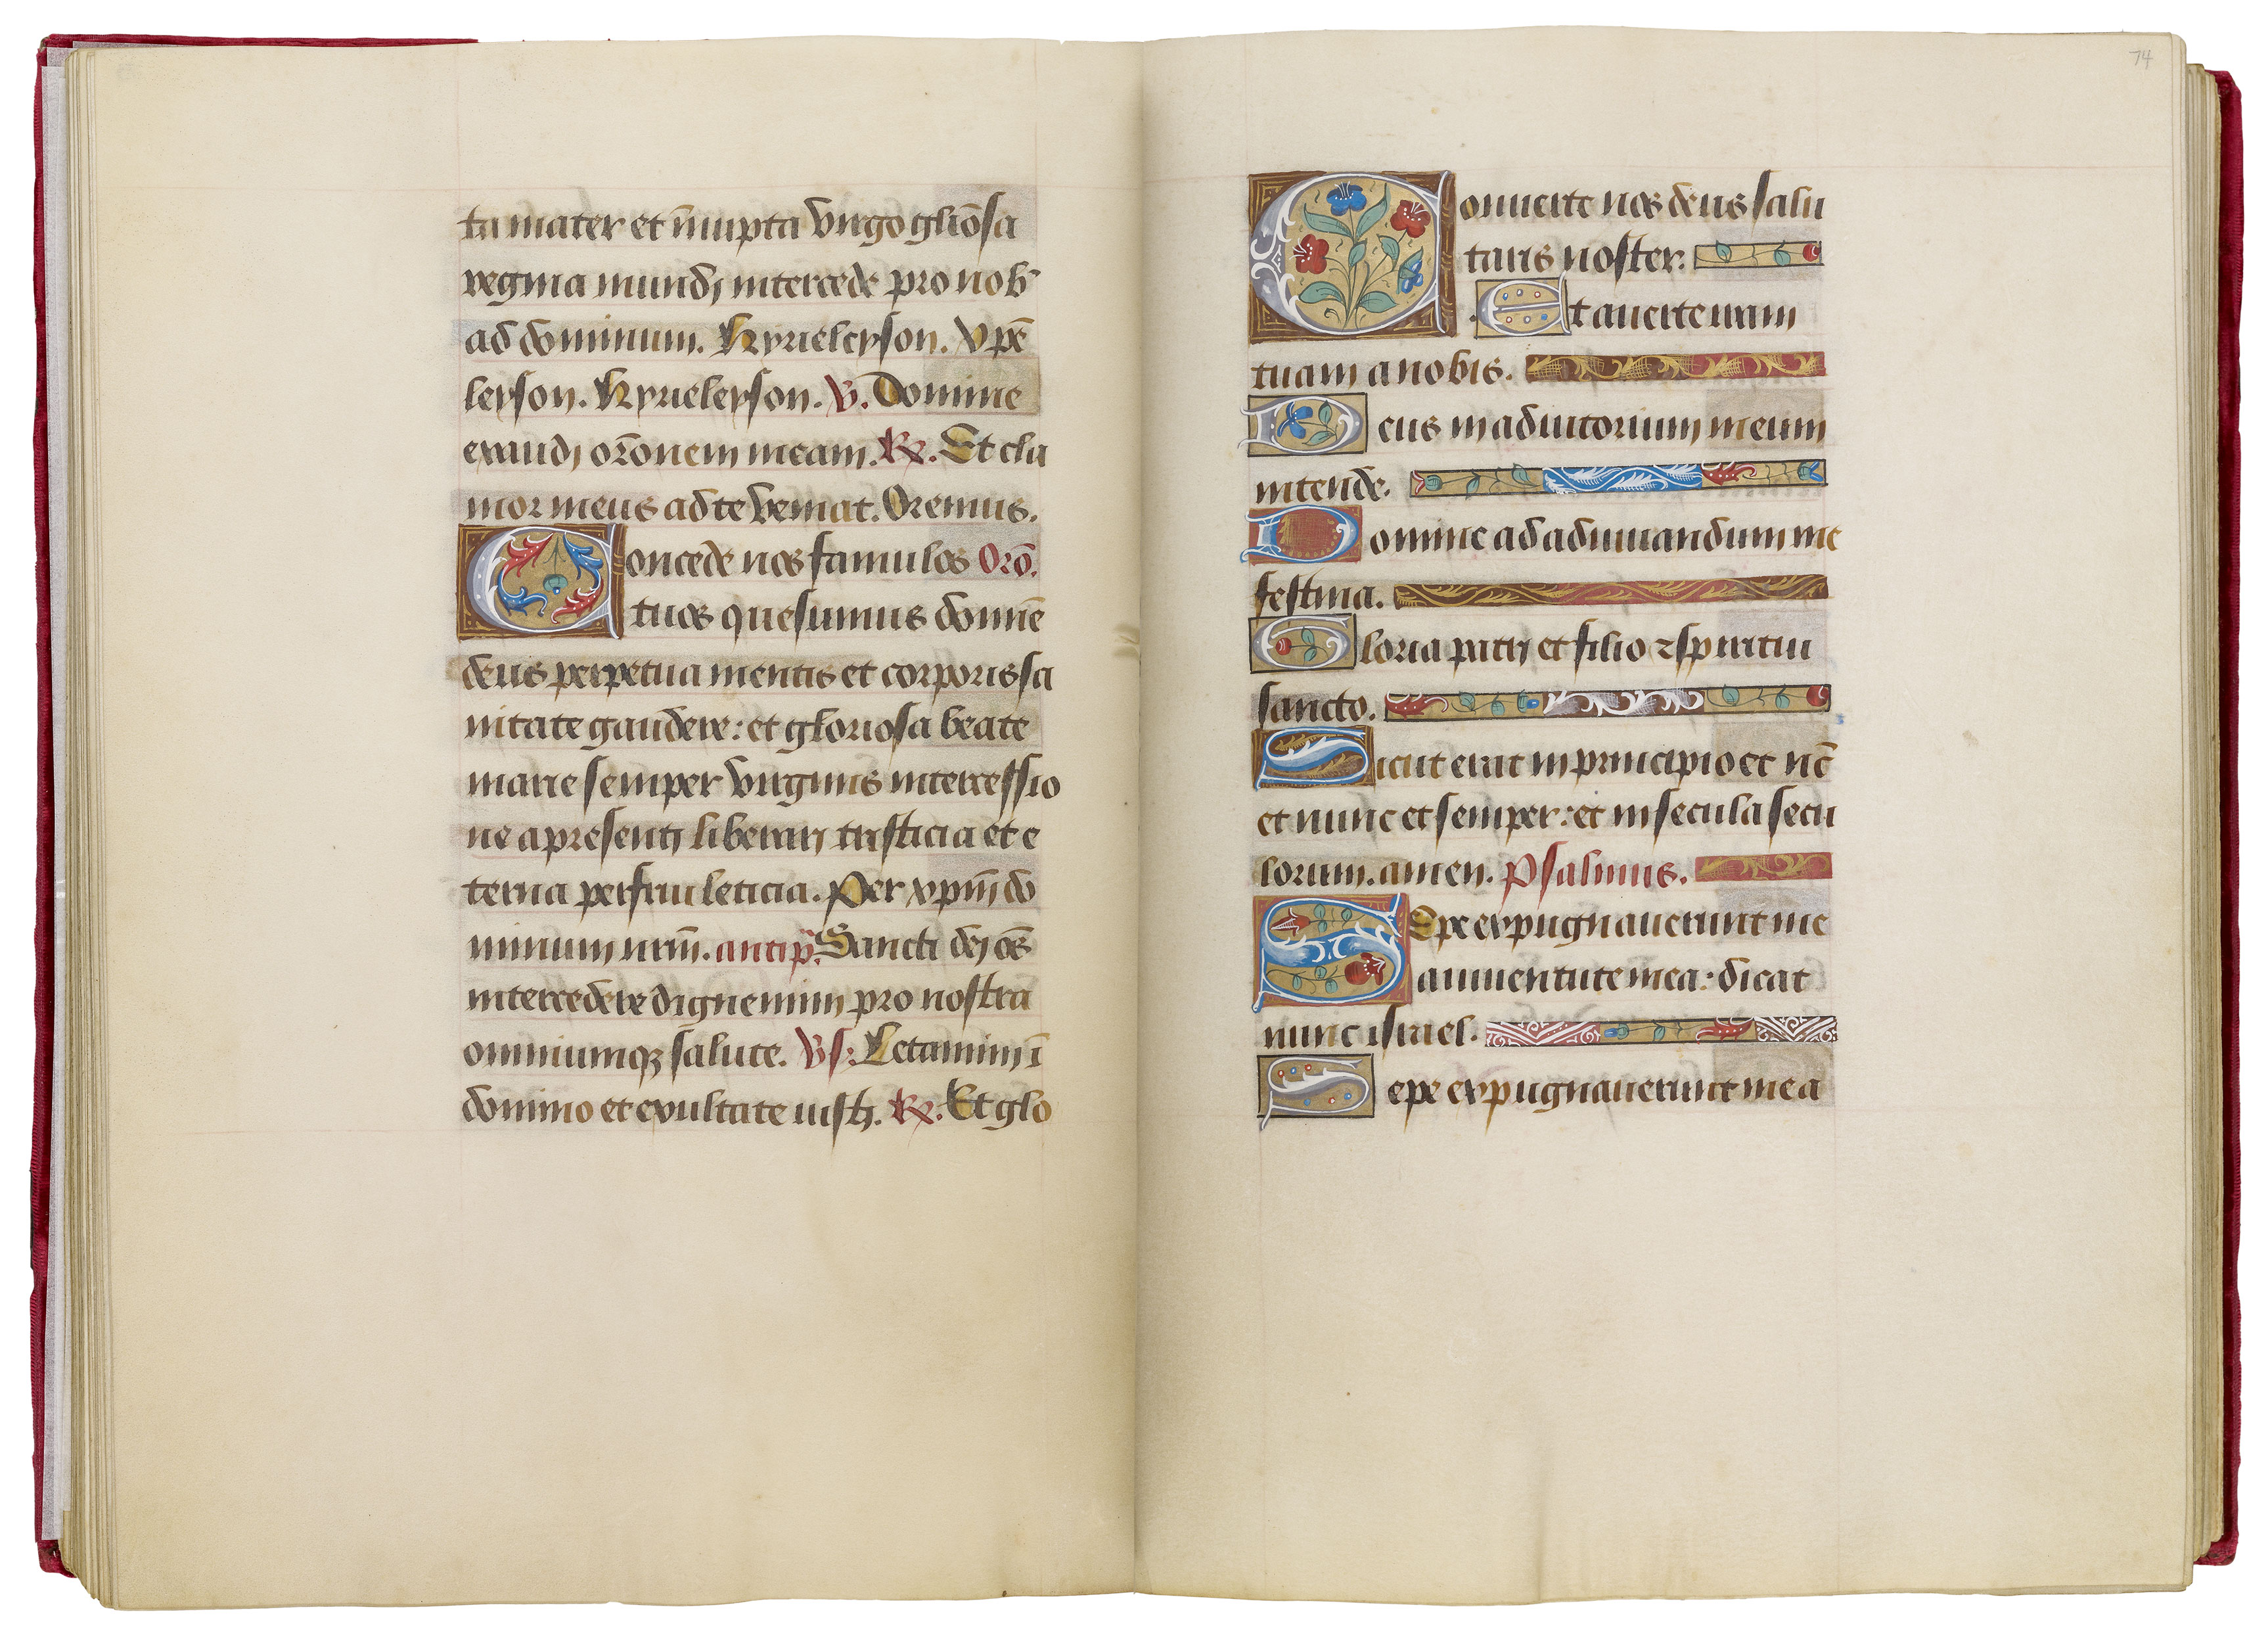 ta mater et īnupta virgo gliōsa
regina mundi intercede pro nob'
ad dominum. Kyrieleyson. xpē
leyson. Kyrieleyson. V. Domine
exaudi orōnem meam. R. Et cla
mor meus ad te veniat. Oremus.
Concede nos famulos Orō.
tuos quesumus domīe
deus perpetua mentis et corporis sa
nitate gaudere: et gloriosa beate
marie semper virginis intercessio
ne a presenti liberari tristicia et e
terna perfrui leticia. Per xpm̄ do
minum nrm̄. antip̄. Sancti dei oēs
intercedere dignemini pro nostra
omniumqꝫ salute. Vs: Letamini ī
domino et exultate iusti. R. Et glo
74
Conuerte nos deus salu
taris noster.
Et auerte iram
tuam a nobis.
Deus in adiutorium meum
intende.
Domine ad adiuuandum me
festina.
Gloria patri et filio ⁊ spiritui
sancto.
Sicut erat in principio et nc̄
et nunc et semper: et in secula secu
lorum. amen. Psalmus.
SEpe expugnauerunt me
a iuuentute mea: dicat
nunc israel.
Sepe expugnauerunt me a